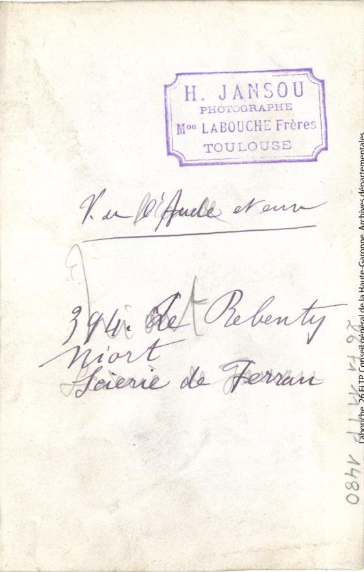 H. JANSOU
PHOTOGRAPHE
Mon LABOUCHE Frères
TOULOUSE
V. de l'Aude et env
394. Le Rebenty
Niort
Scierie de Ferran
Labouche, 26 FI TP, Conseil général de la Haute-Garonne, Archives départementales
1480